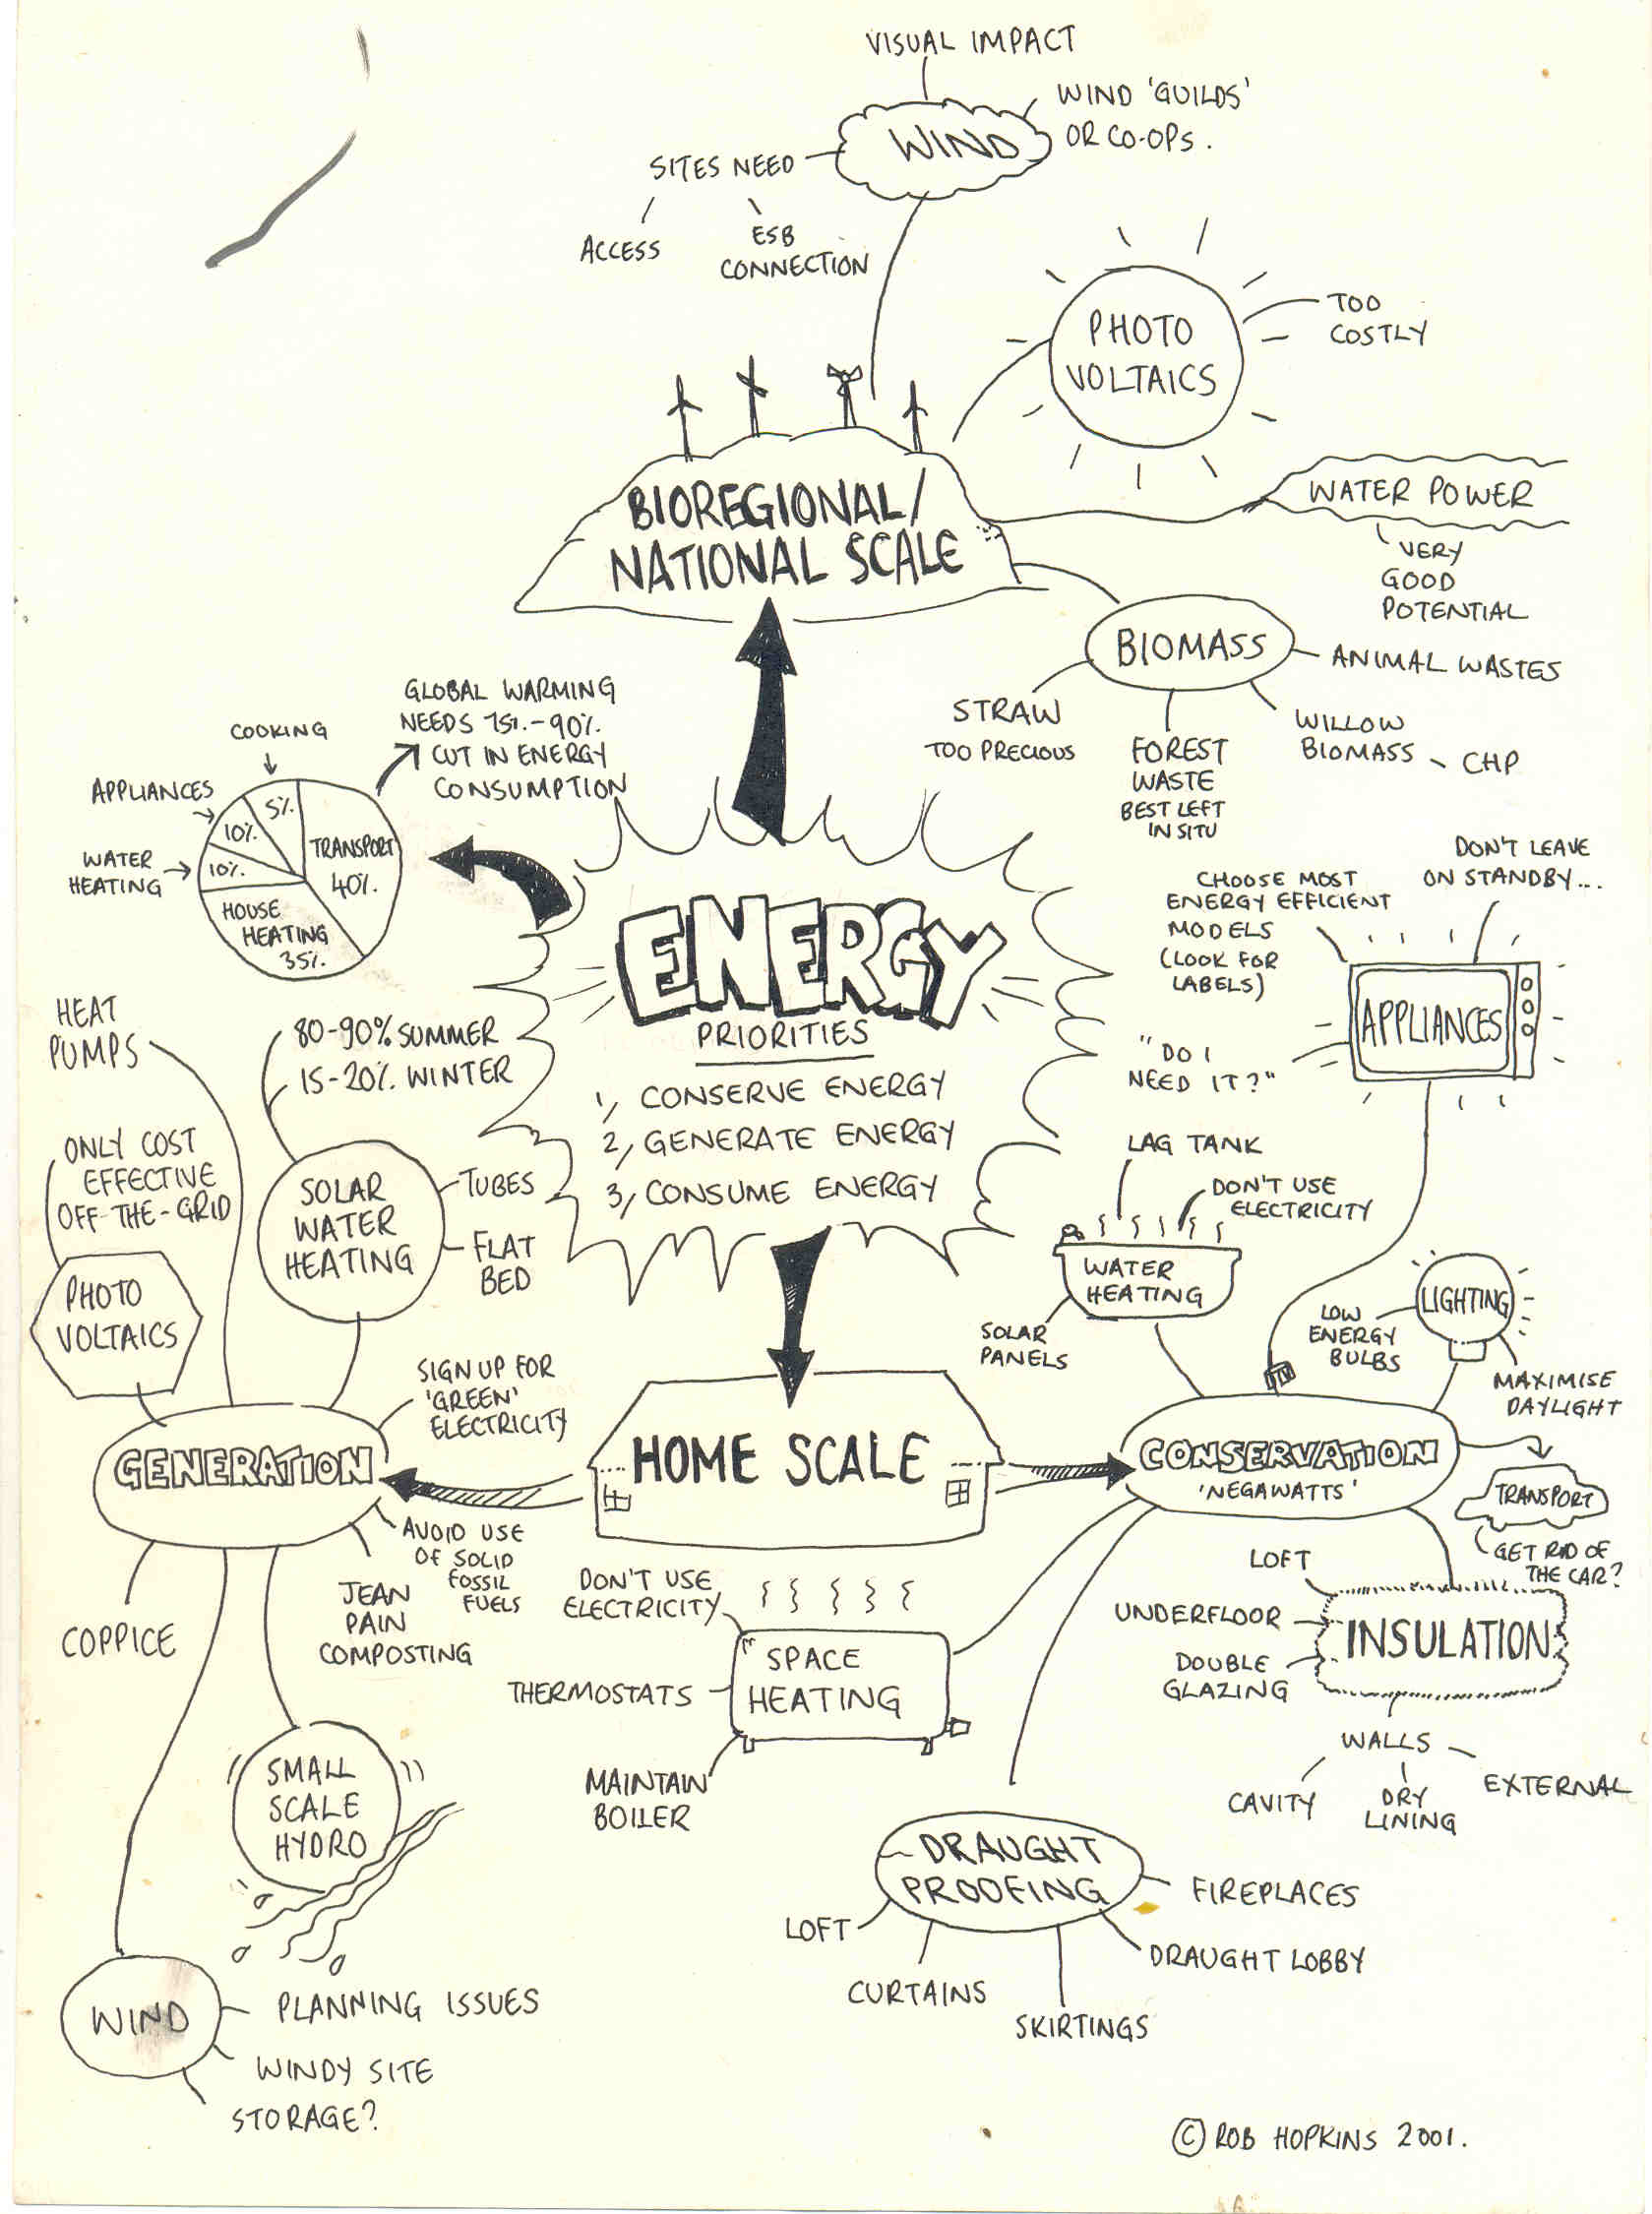 VISUAL IMPACT
WIND 'GUILDS'
OR CO-OPS.
WIND
SITES NEED
ACCESS
ESB
CONNECTION
PHOTO
VOLTAICS
TOO
COSTLY
BIOREGIONAL/
NATIONAL SCALE
WATER POWER
VERY
GOOD
POTENTIAL
BIOMASS
ANIMAL WASTES
STRAW
TOO PRECIOUS
FOREST
WASTE
BEST LEFT
IN SITU
WILLOW
BIOMASS
CHP
GLOBAL WARMING
NEEDS 75%-90%
CUT IN ENERGY
CONSUMPTION
COOKING
APPLIANCES
WATER
HEATING
5%
10%
10%
TRANSPORT
40%
HOUSE
HEATING
35%
ENERGY
PRIORITIES
1, CONSERVE ENERGY
2, GENERATE ENERGY
3, CONSUME ENERGY
DON'T LEAVE
ON STANDBY...
CHOOSE MOST
ENERGY EFFICIENT
MODELS
(LOOK FOR
LABELS)
APPLIANCES
"DO I
NEED IT?"
HEAT
PUMPS
80-90% SUMMER
15-20% WINTER
ONLY COST
EFFECTIVE
OFF-THE-GRID
SOLAR
WATER
HEATING
TUBES
FLAT
BED
PHOTO
VOLTAICS
SIGN UP FOR
'GREEN'
ELECTRICITY
GENERATION
AVOID USE
OF SOLID
FOSSIL
FUELS
JEAN
PAIN
COMPOSTING
COPPICE
SMALL
SCALE
HYDRO
WIND
PLANNING ISSUES
WINDY SITE
STORAGE?
HOME SCALE
LAG TANK
DON'T USE
ELECTRICITY
WATER
HEATING
SOLAR
PANELS
LIGHTING
LOW
ENERGY
BULBS
MAXIMISE
DAYLIGHT
CONSERVATION
'NEGAWATTS'
TRANSPORT
GET RID OF
THE CAR?
LOFT
UNDERFLOOR
DOUBLE
GLAZING
INSULATION
WALLS
CAVITY
DRY
LINING
EXTERNAL
DON'T USE
ELECTRICITY
SPACE
HEATING
THERMOSTATS
MAINTAIN
BOILER
DRAUGHT
PROOFING
FIREPLACES
LOFT
CURTAINS
SKIRTINGS
DRAUGHT LOBBY
© ROB HOPKINS 2001.